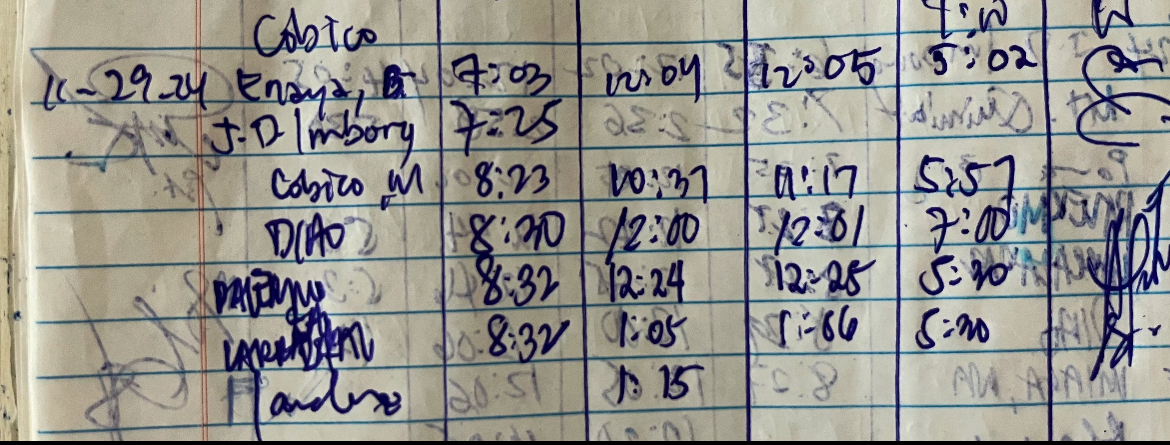 Cobico
11-29-24 Enaya, B. 7:03 12:04 12:05 5:02
J.D Imbory 7:25
Cobico, M 8:23 10:37 11:17 5:57
DIAO 8:30 12:00 12:01 7:00
8:32 12:24 12:25 5:30
8:32 1:05 1:06 5:30
1:15